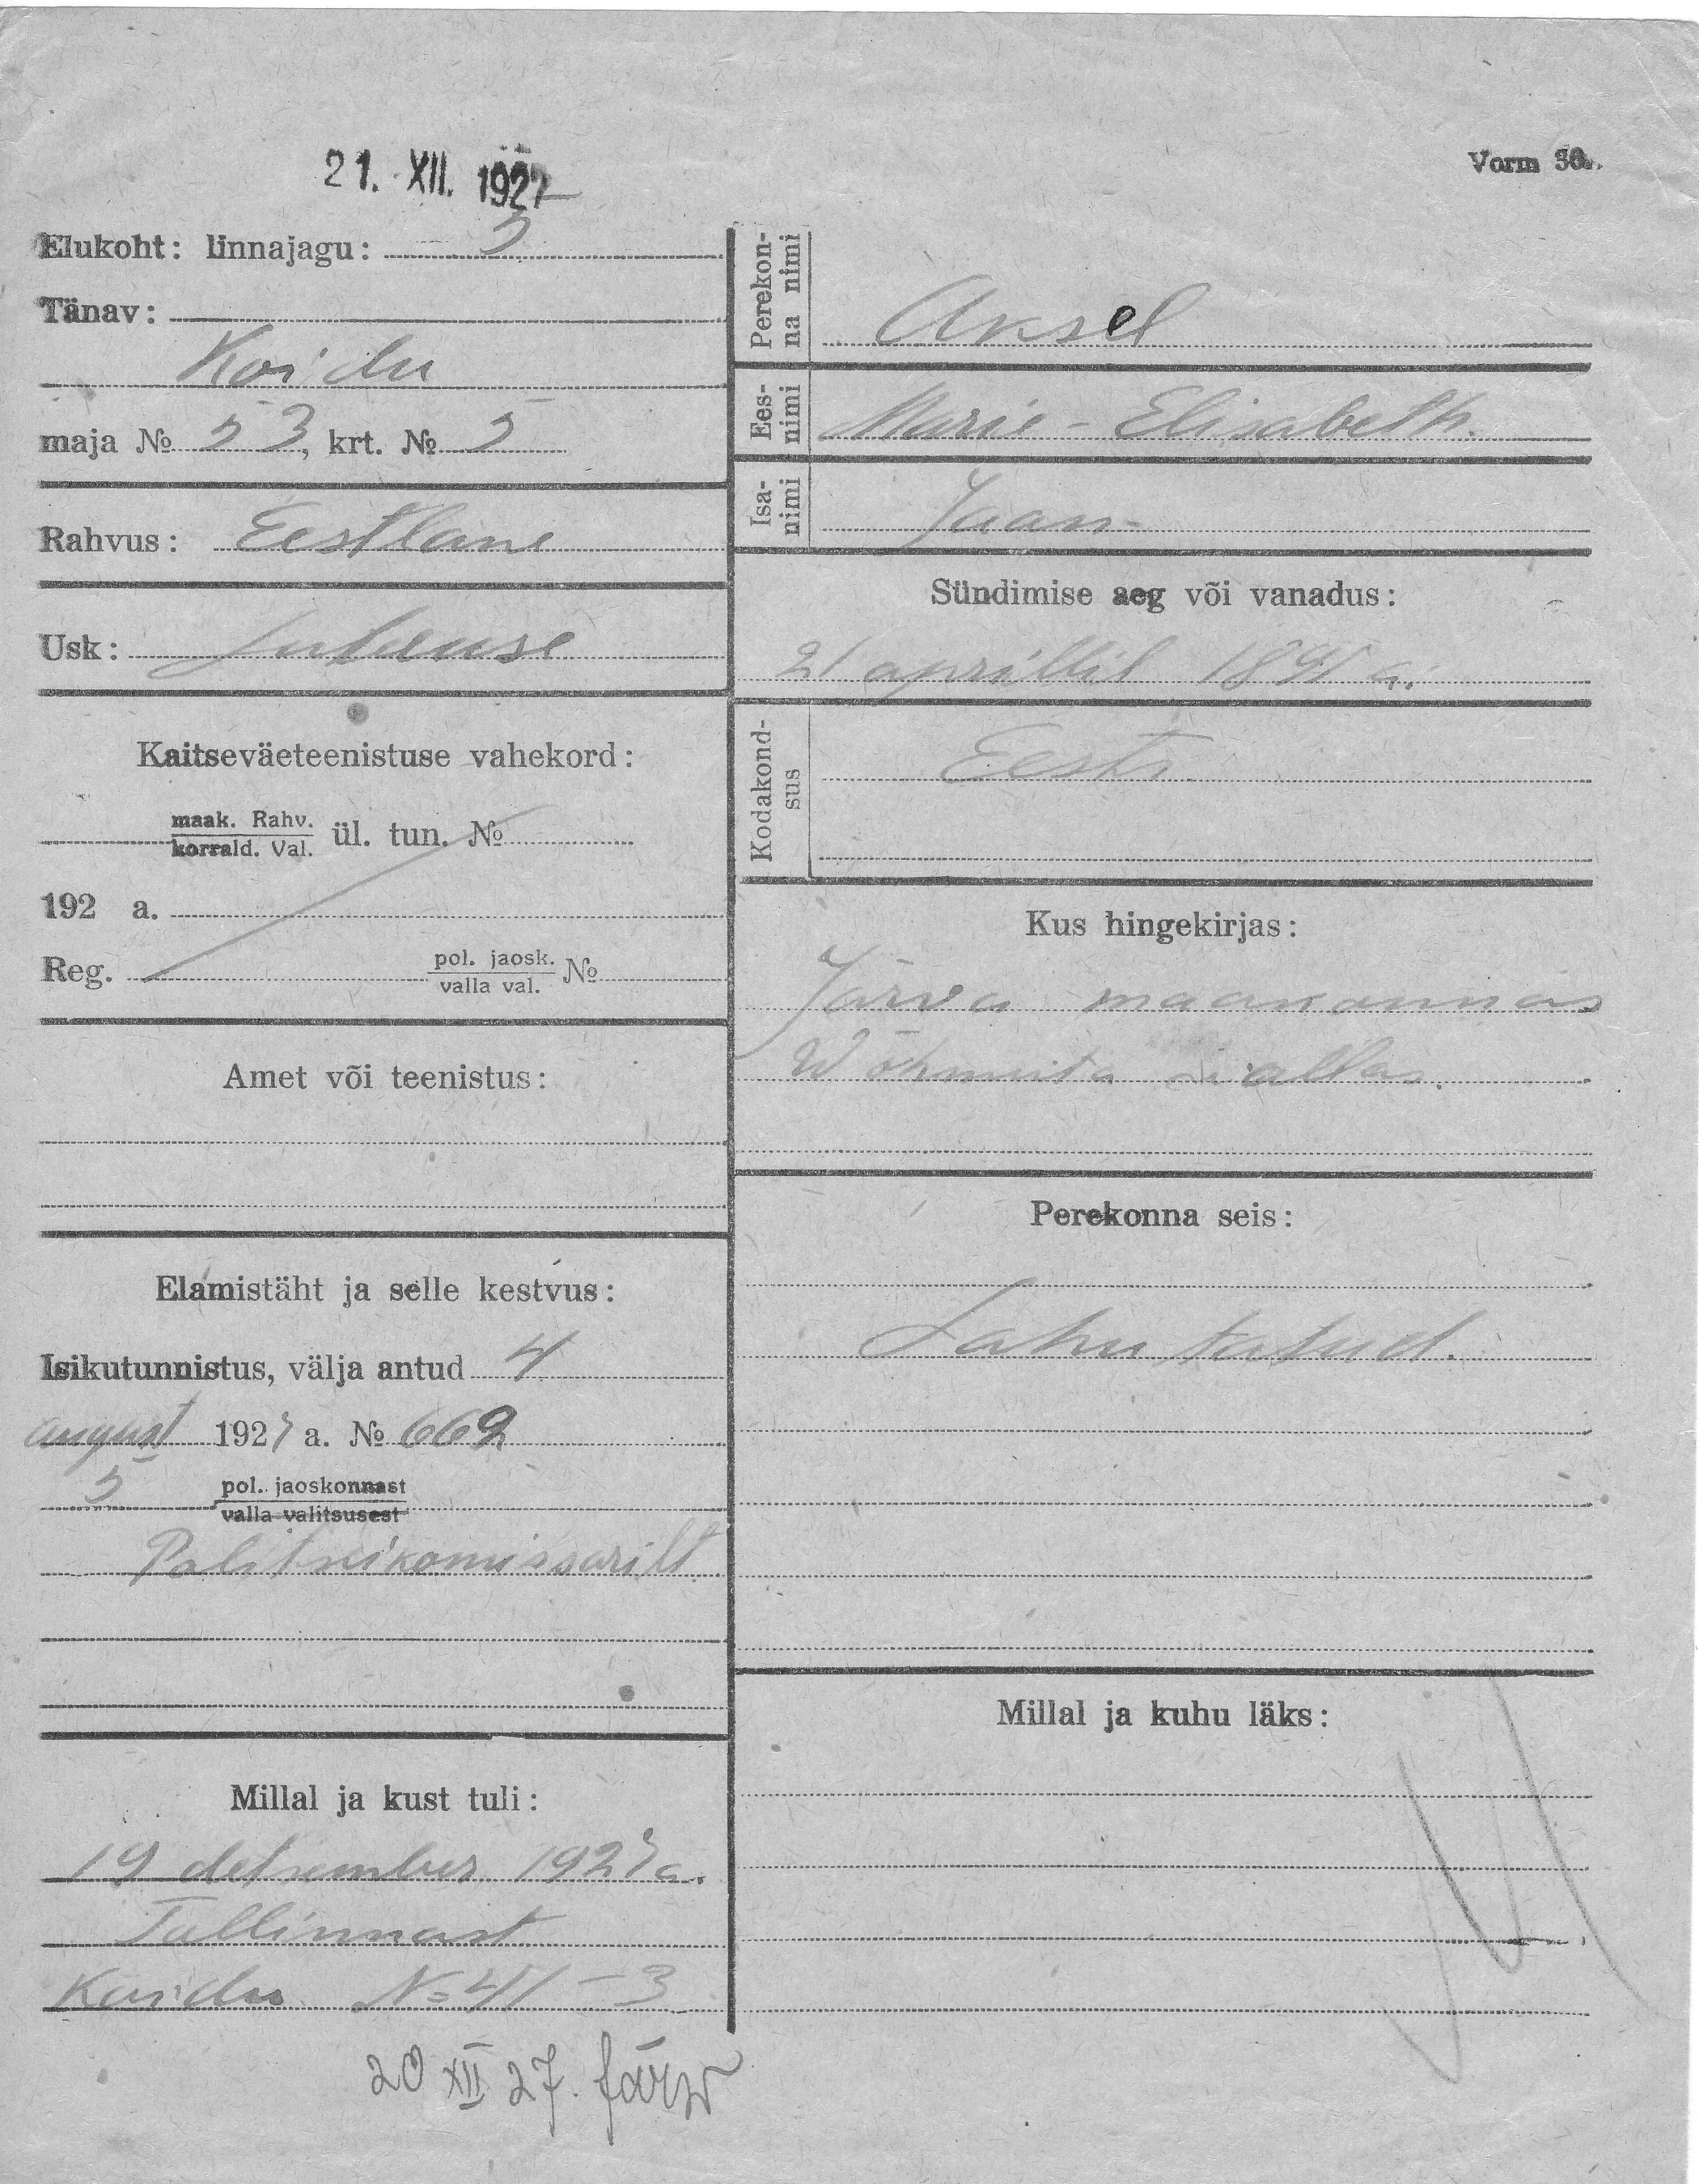 21. XII. 1927
Vorm 30.
Elukoht: linnajagu: 5
Tänav:
Koidu
maja № 53, krt. № 5
Rahvus: Eestlane
Usk: Luteruse
Kaitseväeteenistuse vahekord:
maak. Rahv.
korrald. Val. ül. tun. №
192 a.
Reg. pol. jaosk.
valla val. №
Amet või teenistus:
Elamistäht ja selle kestvus:
Isikutunnistus, välja antud 4
august 1927 a. № 662
5 pol. jaoskonnast
valla valitsusest
Politseikomissarilt
Millal ja kust tuli:
19 detsember 1927 a.
Tallinnast
Koidu № 41-3
20 XII 27.
Perekon-
na nimi
Aksel
Ees-
nimi
Marie-Elisabeth.
Isa-
nimi
Jaan
Sündimise aeg või vanadus:
21 aprillil a.
Kodakond-
sus
Eesti
Kus hingekirjas:
Järva maakonnas
Wõhmuta vallas.
Perekonna seis:
Lahutatud.
Millal ja kuhu läks: